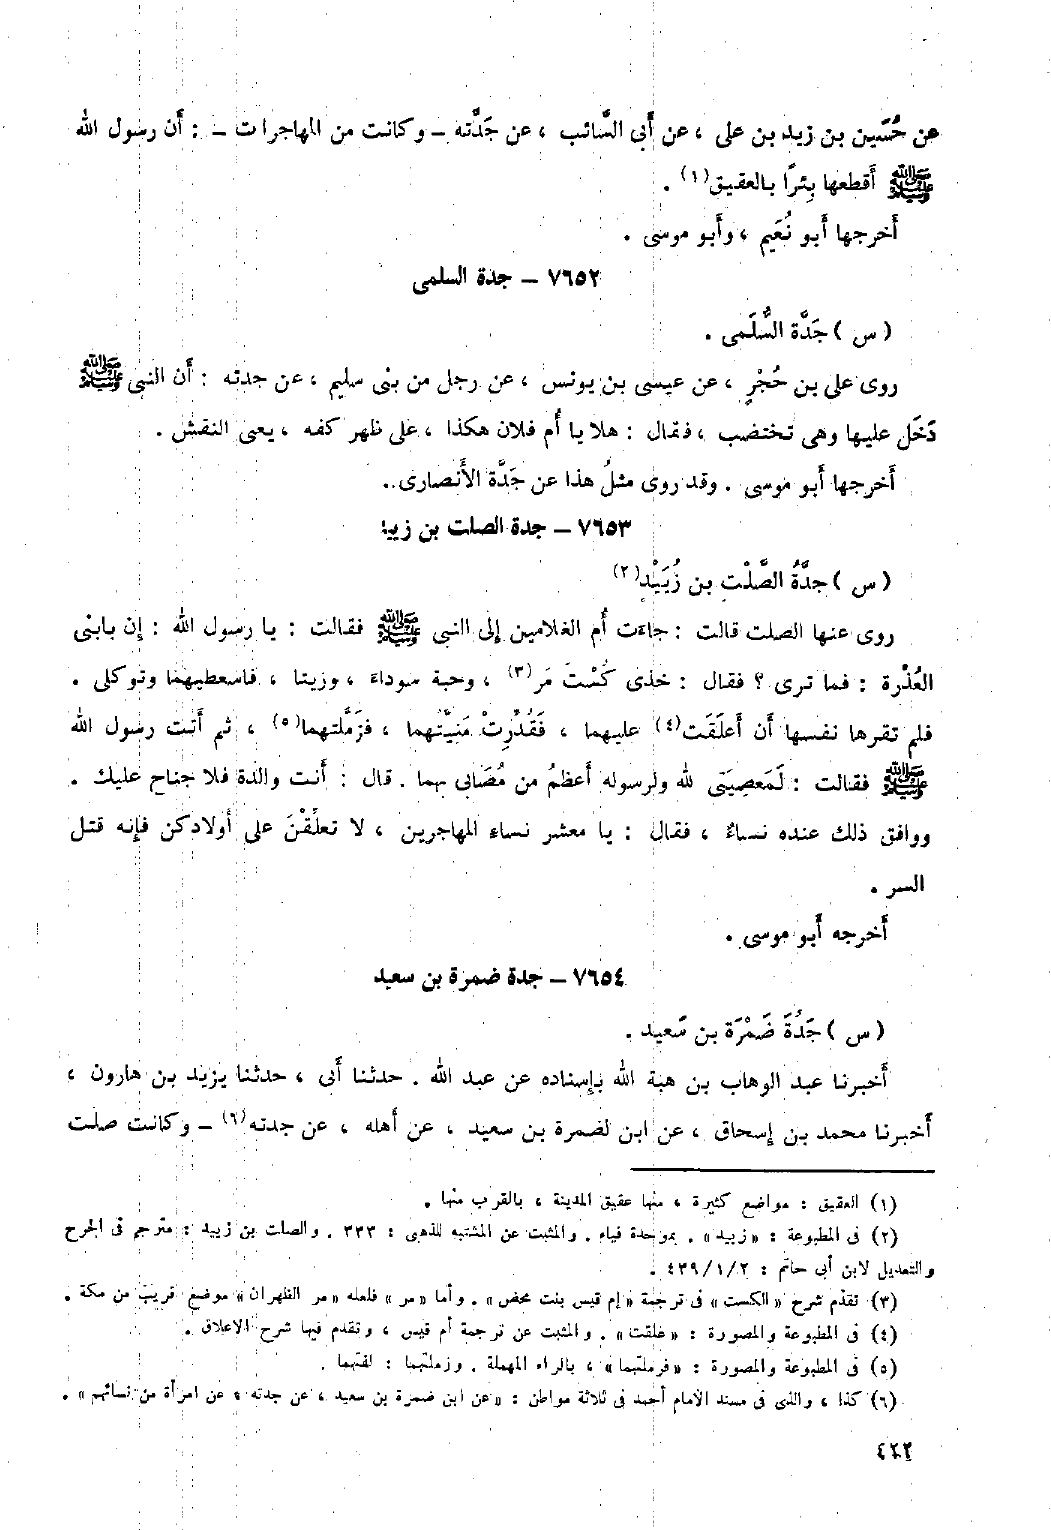 عن حُسَين بن زيد بن على ، عن أَبى السَّائب ، عن جَدَّته – وكانت من المهاجرات – : أَن رسول الله
ﷺ أَقطعها بِئرًا بالعقيق(١) .
أَخرجها أَبو نُعَيم ، وأَبو موسى .
٧٦٥٢ – جدة السلمى
( س ) جَدَّة السُّلَمى .
روى على بن حُجْرٍ ، عن عيسى بن يونس ، عن رجل من بنى سليم ، عن جدته : أَن النبى ﷺ
دَخَل عليها وهى تختضب ، فقال : هلا يا أُم فلان هكذا ، على ظهر كفه ، يعنى النقش .
أَخرجها أَبو موسى . وقد روى مثلُ هذا عن جَدَّة الأَنصارى .
٧٦٥٣ – جدة الصلت بن زييد
( س ) جدَّةُ الصَّلْتِ بن زُيَيْدٍ(٢)
روى عنها الصلت قالت : جاءَت أُم الغلامين إِلى النبى ﷺ فقالت : يا رسول الله : إِن بابنى
العُذْرة : فما ترى ؟ فقال : خذى كُسْتَ مَر(٣) ، وحبة سوداءَ ، وزيتا ، فاسعطيهما وتوكلى .
فلم تقرها نفسها أَن أَعلَقَت(٤) عليهما ، فَقُدِّرتْ مَنِيَّتُهما ، فزَمَّلتهما(٥) ، ثم أَتت رسول الله
ﷺ فقالت : لَمَعصِيَتى لله ولرسوله أَعظمُ من مُصَابى بهما . قال : أَنت والدة فلا جناح عليك .
ووافق ذلك عنده نساءٌ ، فقال : يا معشر نساء المهاجرين ، لا تعلِّقْنَ على أَولادكن فإِنه قتل
السر .
أَخرجه أَبو موسى .
٧٦٥٤ – جدة ضمرة بن سعيد
( س ) جَدُةَ ضَمْرَة بن سَعيد .
أَخبرنا عبد الوهاب بن هبة الله بإِسناده عن عبد الله . حدثنا أَبى ، حدثنا يزيد بن هارون ،
أَخبرنا محمد بن إِسحاق ، عن ابن لضمرة بن سعيد ، عن أَهله ، عن جدته(٦) – وكانت صلت
(١) العقيق : مواضع كثيرة ، منها عقيق المدينة ، بالقرب منها .
(٢) فى المطبوعة : «زبيد» . بموحدة فياء . والمثبت عن المشتبه للذهبى : ٣٣٣ . والصلت بن زييد : مترجم فى الجرح
والتعديل لابن أبى حاتم : ٤٣٩/١/٢ .
(٣) تقدم شرح «الكست» فى ترجمة «إم قيس بنت محض» . وأما «مر» فلعله «مر الظهران» موضع قريب من مكة .
(٤) فى المطبوعة والمصورة : «غلقت» . والمثبت عن ترجمة أم قيس ، وتقدم فيها شرح الإعلاق .
(٥) فى المطبوعة والمصورة : «فرملتهما» ، بالراء المهملة . وزملتهما : لفتهما .
(٦) كذا ، والذى فى مسند الإمام أحمد فى ثلاثة مواطن : «عن ابن ضمرة بن سعيد ، عن جدته ، عن امرأة من نسائهم» .
٤٢٢